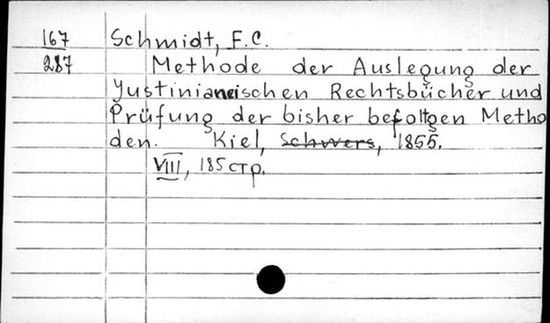 167 Schmidt, F.C.
287 Methode der Auslegung der
Justinianeischen Rechtsbücher und
Prüfung der bisher befoltgen Metho
den. Kiel, Schwers, 1855.
VIII, 185 стр.